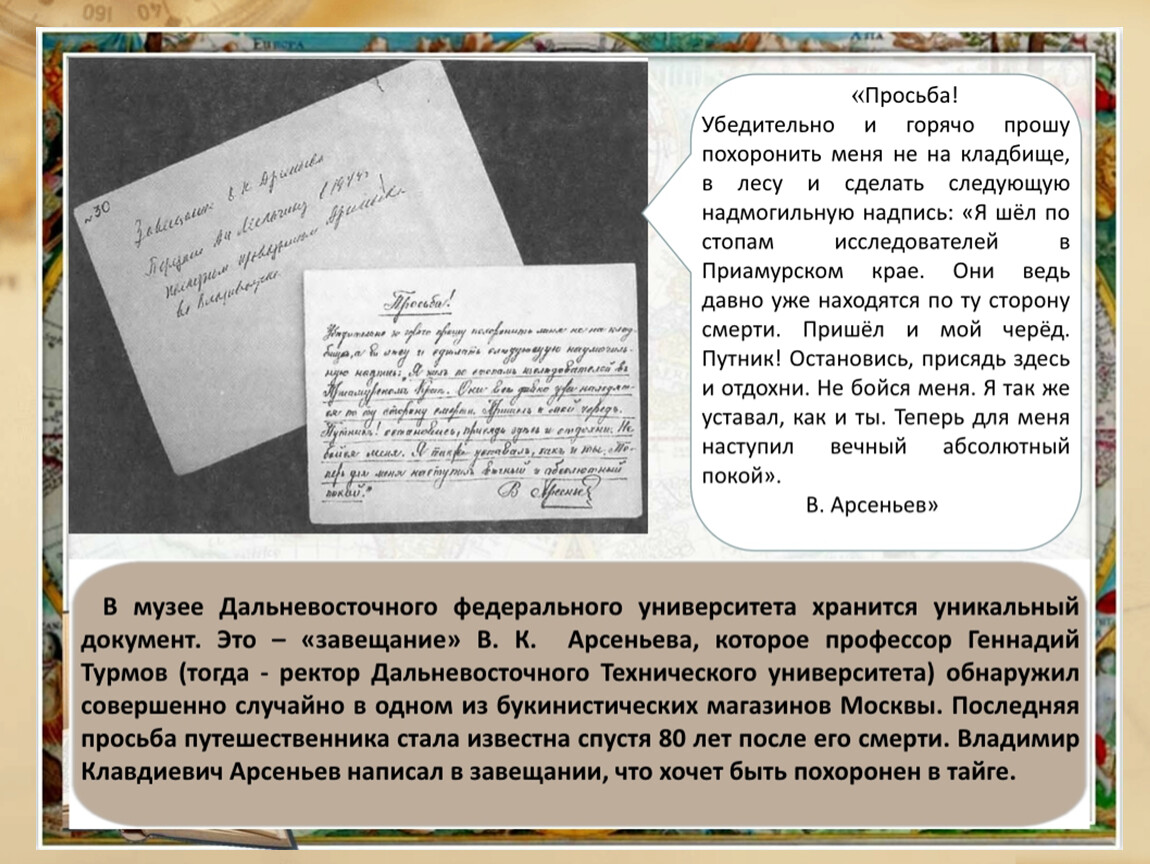 091 09
EUROPA
ASIA
№30
Завещание В К Арсеньева
Просьба!
Убедительно и горячо прошу похоронить меня не на клад-
бище, а въ лесу и сделать следующую надмогиль-
ную надпись: "Я шелъ по стопамъ изследователей въ
Приамурскомъ Крае. Они ведь давно уже находят-
ся по ту сторону смерти. Пришелъ и мой чередъ.
Путникъ! остановись, присядь здесь и отдохни. Не
бойся меня. Я также уставалъ, какъ и ты. Те-
перь для меня наступилъ вечный и абсолютный
покой."
В Арсеньев
«Просьба!
Убедительно и горячо прошу
похоронить меня не на кладбище,
в лесу и сделать следующую
надмогильную надпись: «Я шёл по
стопам исследователей в
Приамурском крае. Они ведь
давно уже находятся по ту сторону
смерти. Пришёл и мой черёд.
Путник! Остановись, присядь здесь
и отдохни. Не бойся меня. Я так же
уставал, как и ты. Теперь для меня
наступил вечный абсолютный
покой».
В. Арсеньев»
В музее Дальневосточного федерального университета хранится уникальный
документ. Это – «завещание» В. К. Арсеньева, которое профессор Геннадий
Турмов (тогда - ректор Дальневосточного Технического университета) обнаружил
совершенно случайно в одном из букинистических магазинов Москвы. Последняя
просьба путешественника стала известна спустя 80 лет после его смерти. Владимир
Клавдиевич Арсеньев написал в завещании, что хочет быть похоронен в тайге.